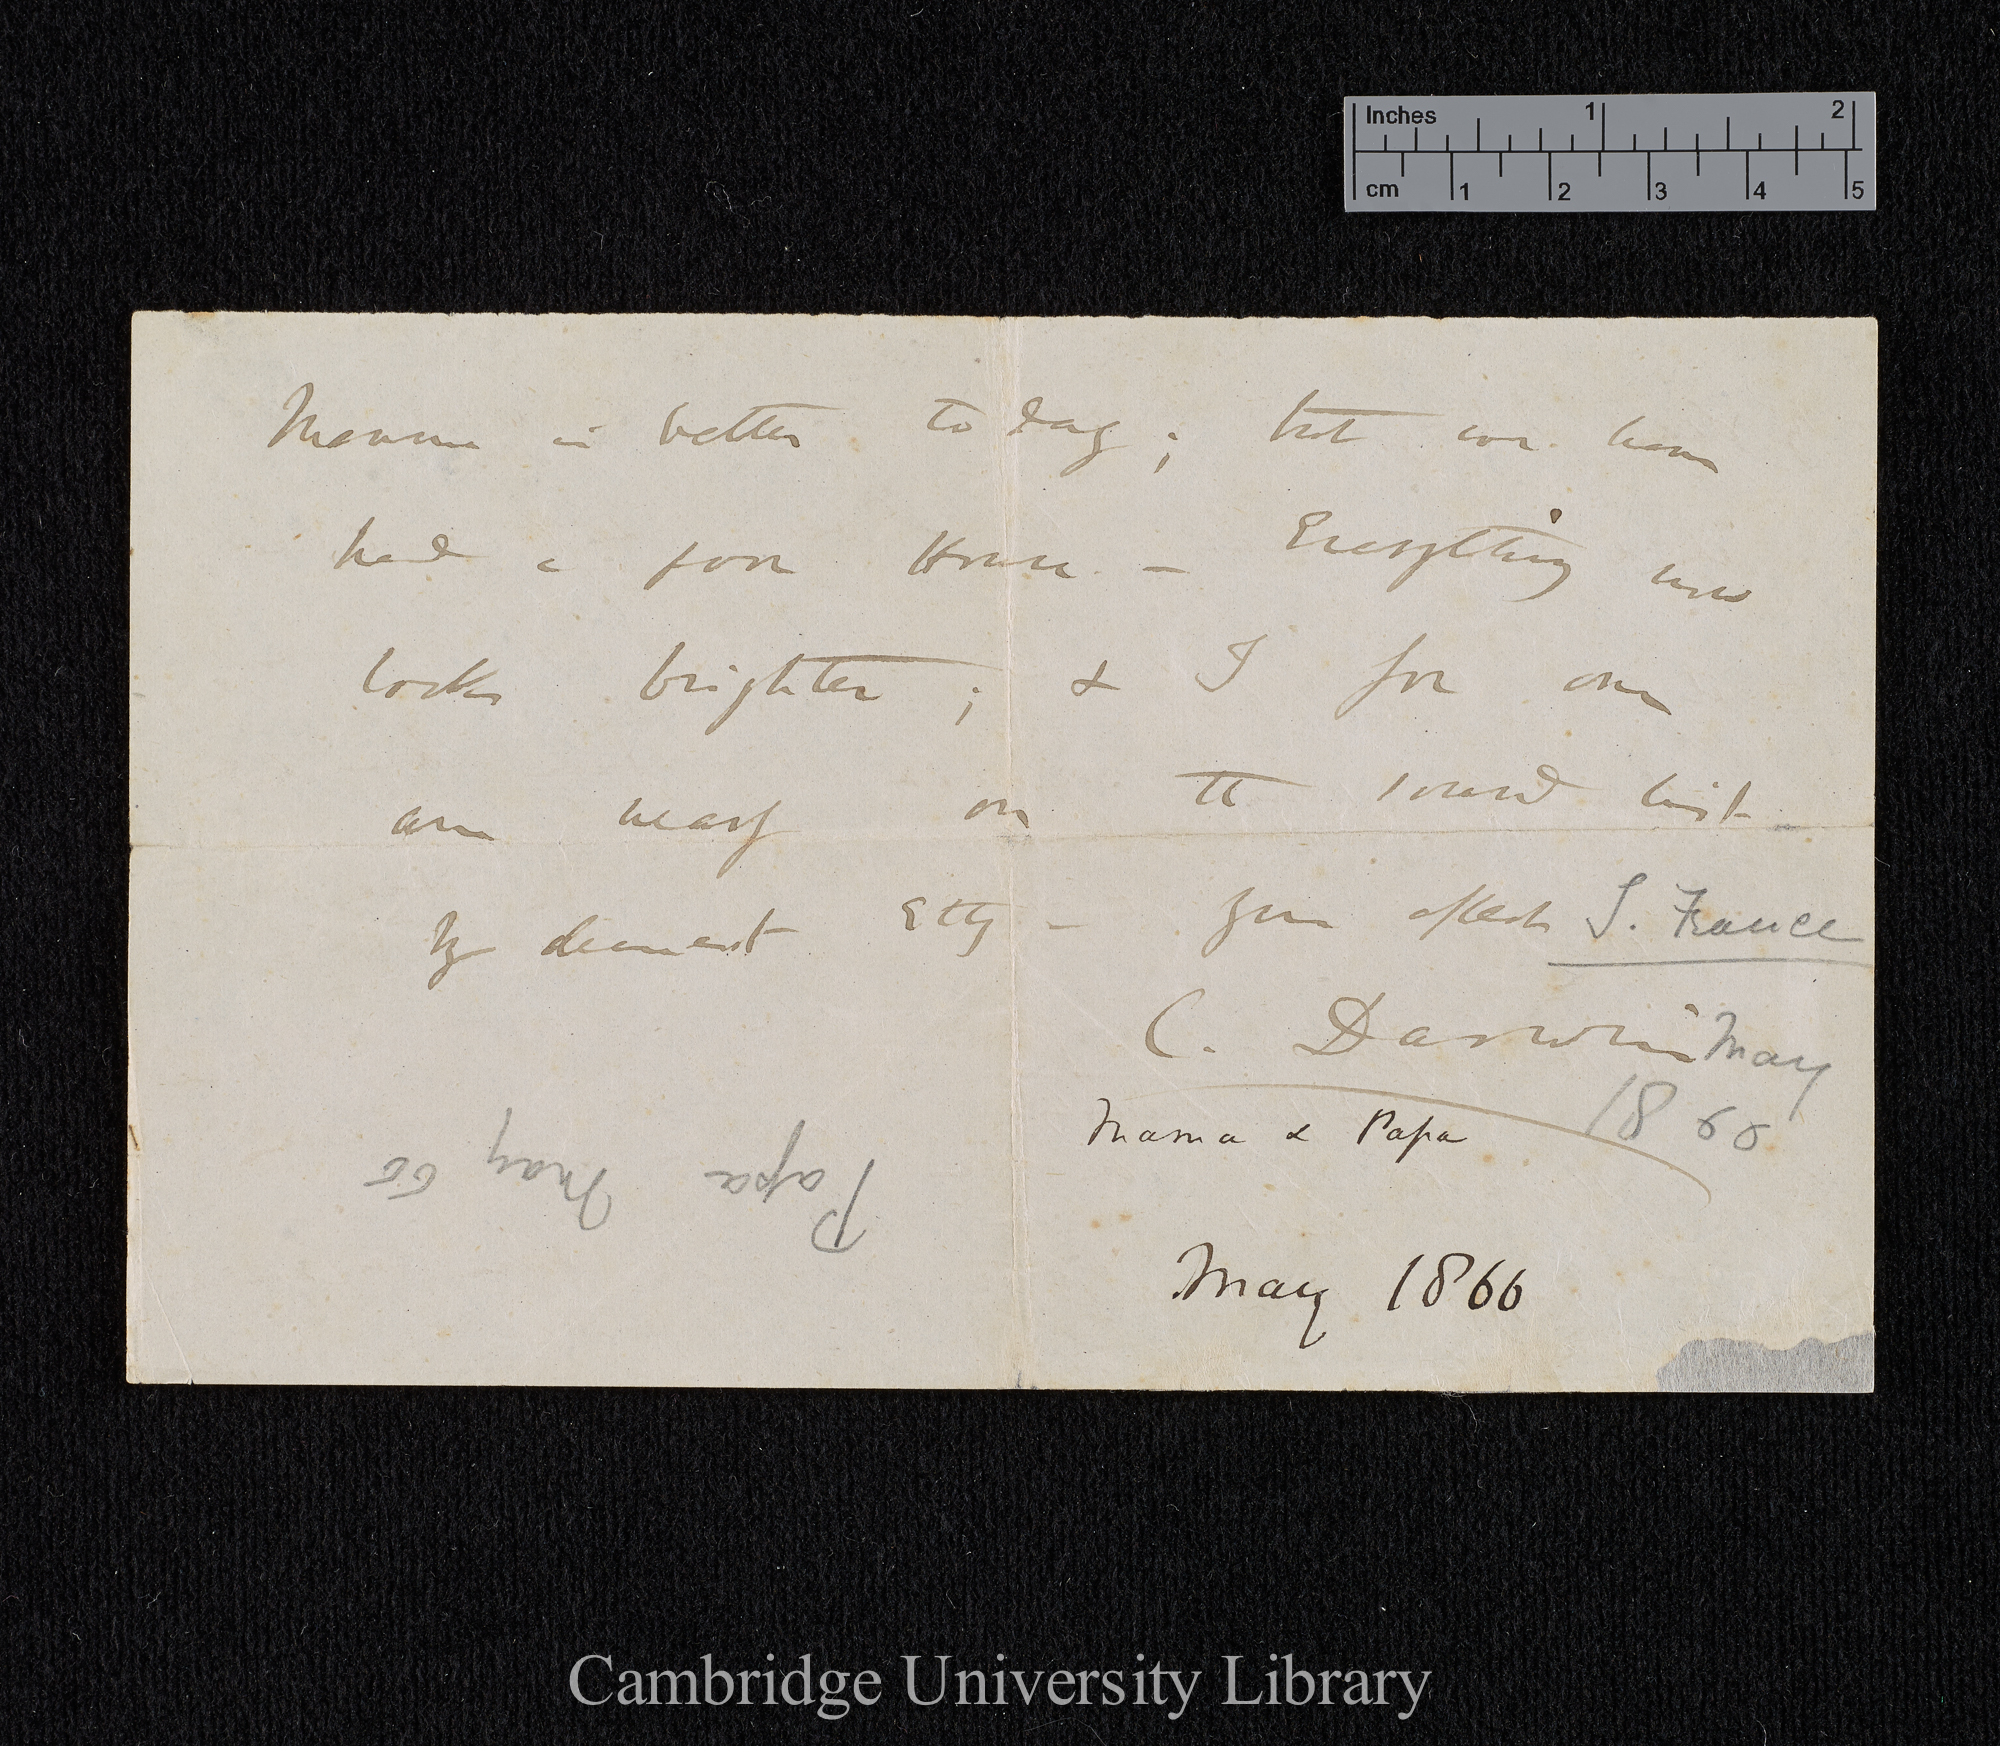 Inches 1 2
cm 1 2 3 4 5
Mamma is better to day; but we have
had a poor House — Everything now
looks brighter; & I for one
am nearly on the round
My dearest Etty — Your affect
S. France
C. Darwin
May
1866
Mama & Papa
Papa May 66
May 1866
Cambridge University Library